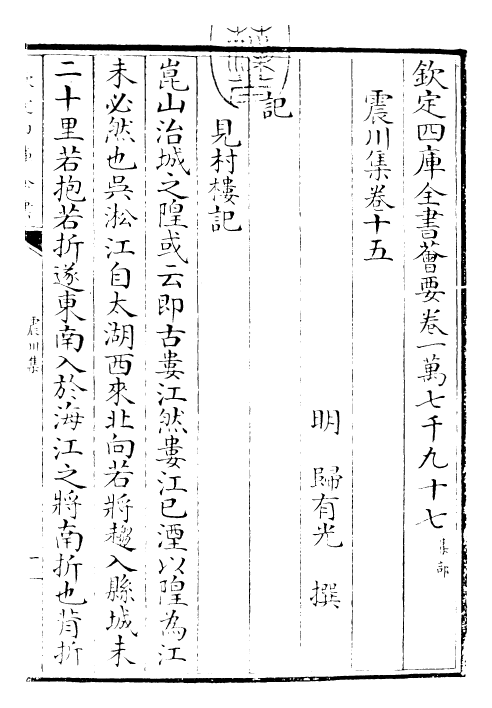 欽定四庫全書薈要卷一萬七千九十七集部
震川集卷十五
明 歸有光 撰
記
見村樓記
崑山治城之隍或云即古婁江然婁江已湮以隍為江
未必然也吳淞江自太湖西來北向若將趨入縣城未
二十里若抱若折遂東南入於海江之將南折也背折
震川集